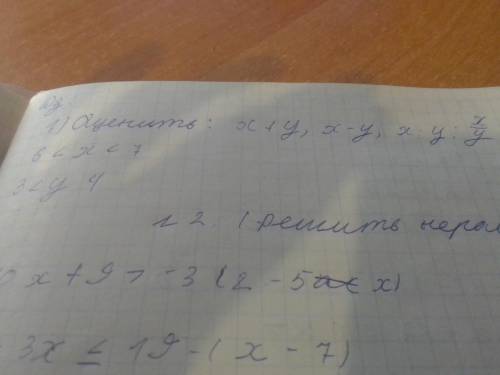 1) Оценить: x+y, x-y, x·y; x/y
6 < x < 7
3 < y 4
2. (решить нерав
x + 9 > -3 (2 - 5 x)
3x ≤ 19 - (x - 7)